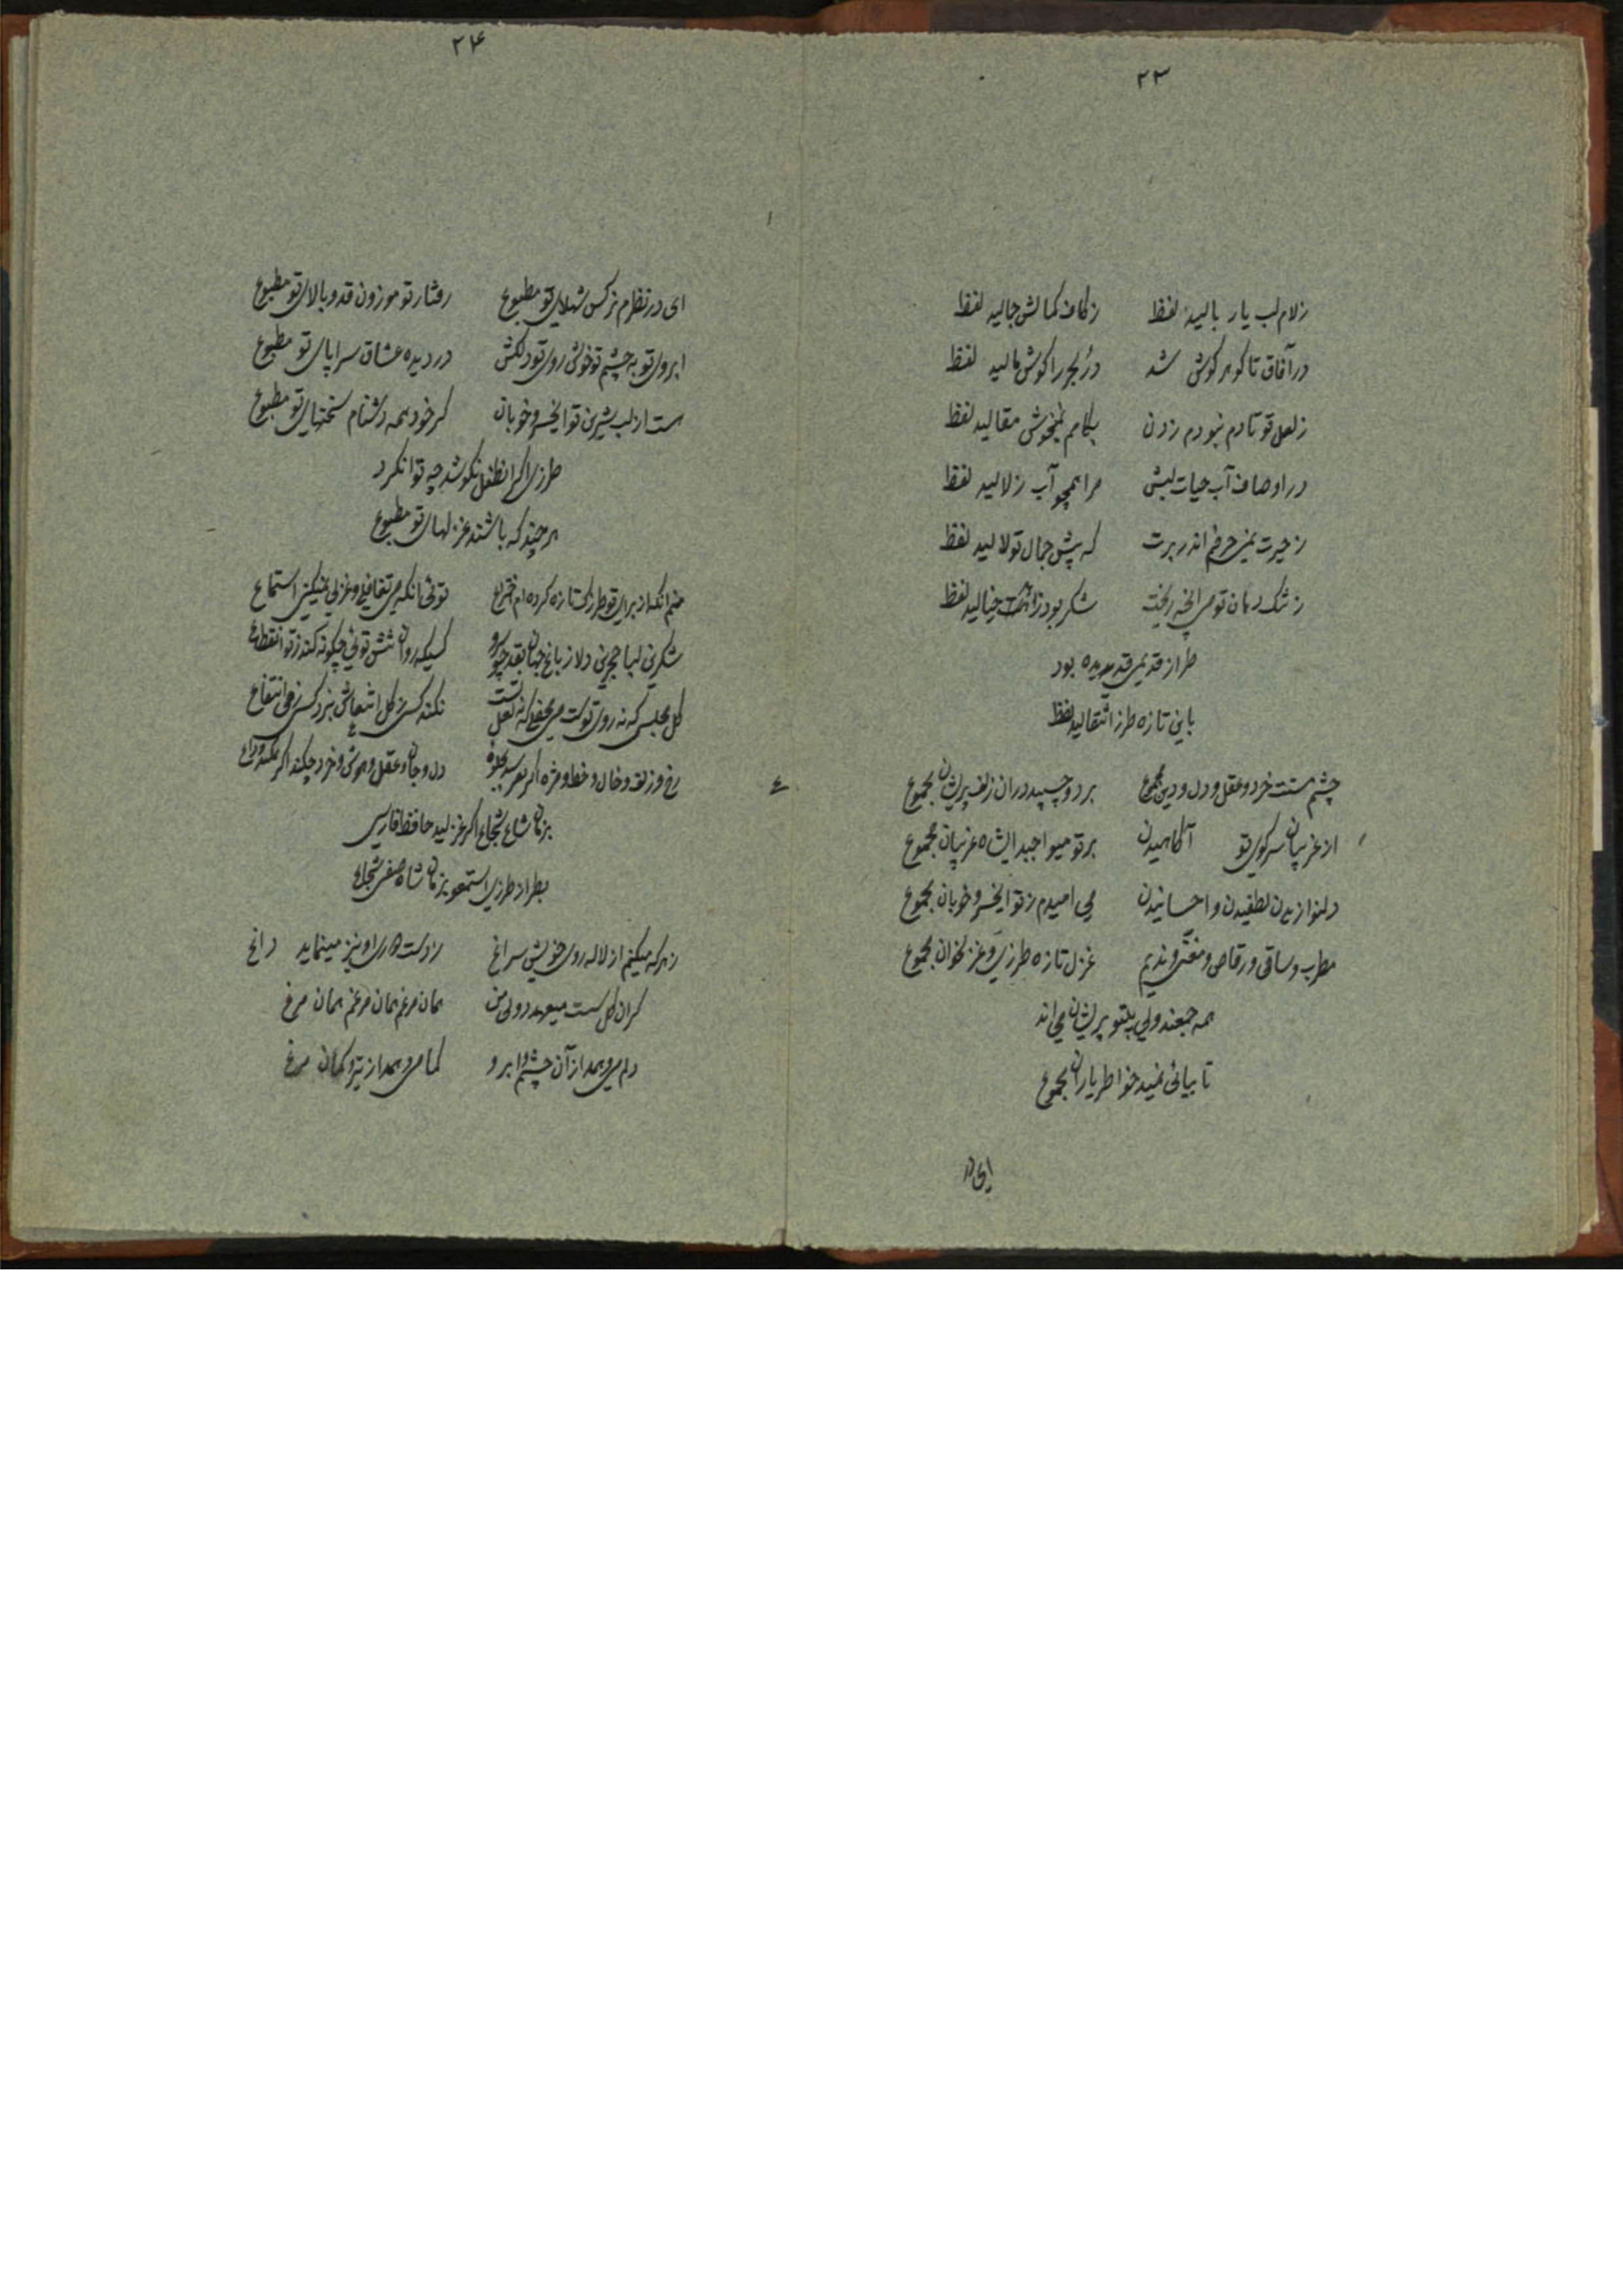 ۲۳
زلام لب یار بالید لفظ زکاف کمالش جالید لفظ
در آفاق تا گوهر گوش شد درُ بحر را گوش مالید لفظ
زلعل تو تا دم نبودم زدن بکامم نمیخوش مقالید لفظ
در اوصاف آب حیات لبش مرا همچو آب زلالید لفظ
زحیرت نمی حرفم اندر برت که پیش جمال تو لالید لفظ
ز تنک دهان تو می‌ریخت شکر بود خیالید لفظ
طراز قدیمی قدیده بود
باین تازه طرز انتقالید لفظ
چشم مستت خرد و عقل و دل و دین مجموع برد و چسپید در ان زلف پریشان مجموع
از غریبان سر کوی تو آکاهیدن بر تو میواجبد ایشاه غریبان مجموع
دلنوازیدن لطفیدن و احسانیدن می امیدم ز تو ایخسرو خوبان مجموع
مطرب و ساقی و رقاص و مغنّی و ندیم غزل تازه طرزی و غزلخوان مجموع
همه جمعند ولی بیتو پریشانی اند
تا بیائی نمیید خواطر یاران مجموع
ای در
۲۴
ای در نظرم نرکس شهلای تو مطبوع رفتار تو موزون قد و بالای تو مطبوع
ابروی تو به چشم تو خوش روی تو دلکش در دیده عشاق سراپای تو مطبوع
ست از لب شیرین تو ایخسرو خوبان کر خود همه دشنام سخنهای تو مطبوع
طرزی اکر انطفل نکوشد چه توانکرد
هر چند که باشند غزلهای تو مطبوع
منم انکه از برای تو طرزی تازه کرده ام اختراع توئی انکه می تغافلی و غزلی نمیکنی استماع
شکرین لبا دلا ز باغ جهان کسیکه روان تنش توئی چکونه کند ز تو انقطاع
کل مجلسی که نه روی تو ست می محفلی که نه لعل تست نکند کسی ز کل انتعاش نبرد کسی ز می انتفاع
رخ و زلف و خال و خط و مژه اکر جلوه دل و جان و عقل و هوش و خرد چکند اکر نکند وداع
بزمان شاه شجاع اکر غزلید حافظ فارسی
بطراز طرزی استمعوا بزمان شاه صفی شجاع
ز هر که میکنم از لاله روی خویش سراغ ز دست او نیز مینماید داغ
کر ان کل ست میعهد دولی من همان مرغم همان مرغم همان مرغ
دلم میرمد از آن چشم و ابرو کما میرمد از تیر و کمان مرغ